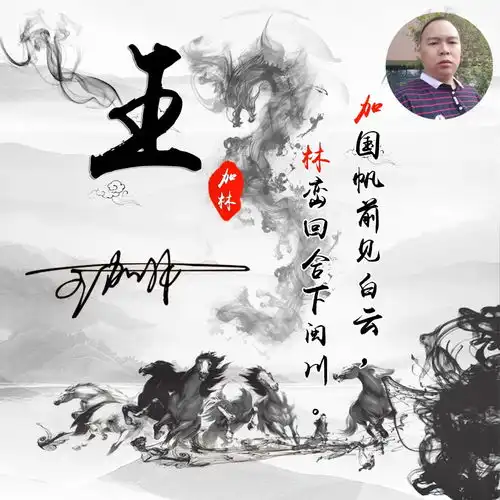 王
加林
加国帆前见白云，
林峦回合下闽川。